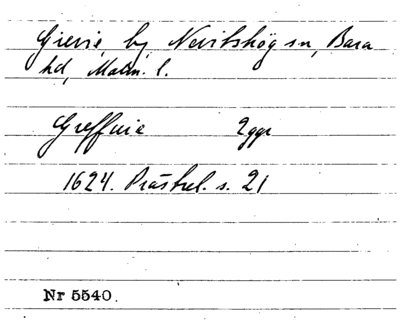 Gievie, by, Nevitshög sn, Bara
hd, Malm. l.
Greffuie 2ggr
1624. Prästrel. s. 21
Nr 5540.